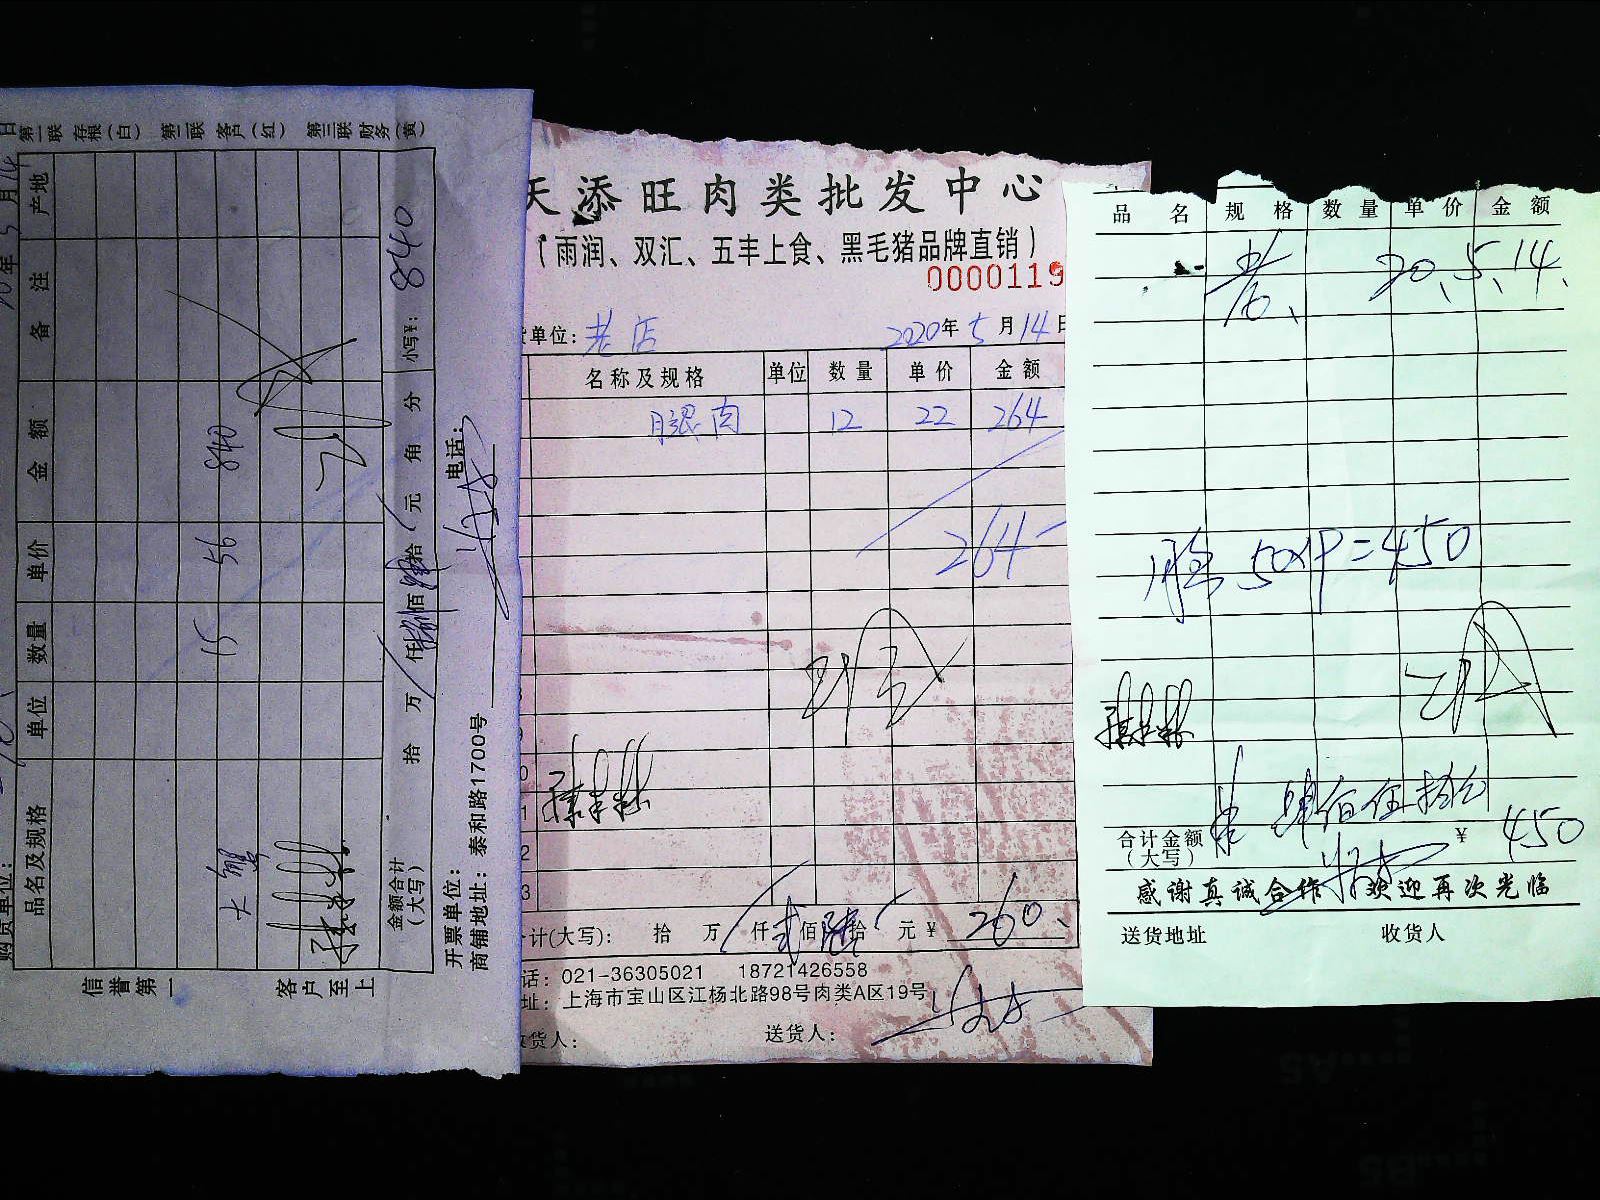 第一联 存根(白) 第二联 客户(红) 第三联 财务(黄)
购货单位:
年5月14日
品名及规格 单位 数量 单价 金额 备注 产地
大 15 56 840
金额合计(大写) 拾 万 仟 佰 拾 元 角 分 小写¥: 840
开票单位: 电话:
商铺地址: 泰和路1700号
信誉第一 客户至上
天添旺肉类批发中心
(雨润、双汇、五丰上食、黑毛猪品牌直销)
0000119
货单位: 老店 2020年5月14日
名称及规格 单位 数量 单价 金额
腿肉 12 22 264
264
计(大写): 拾 万 仟 贰佰 陆拾 元¥ 260.
话: 021-36305021 18721426558
址: 上海市宝山区江杨北路98号肉类A区19号
收货人: 送货人:
品名 规格 数量 单价 金额
老、 20、5、14、
50×9=450
合计金额(大写) 肆佰伍拾 ¥ 450
感谢真诚合作 欢迎再次光临
送货地址 收货人